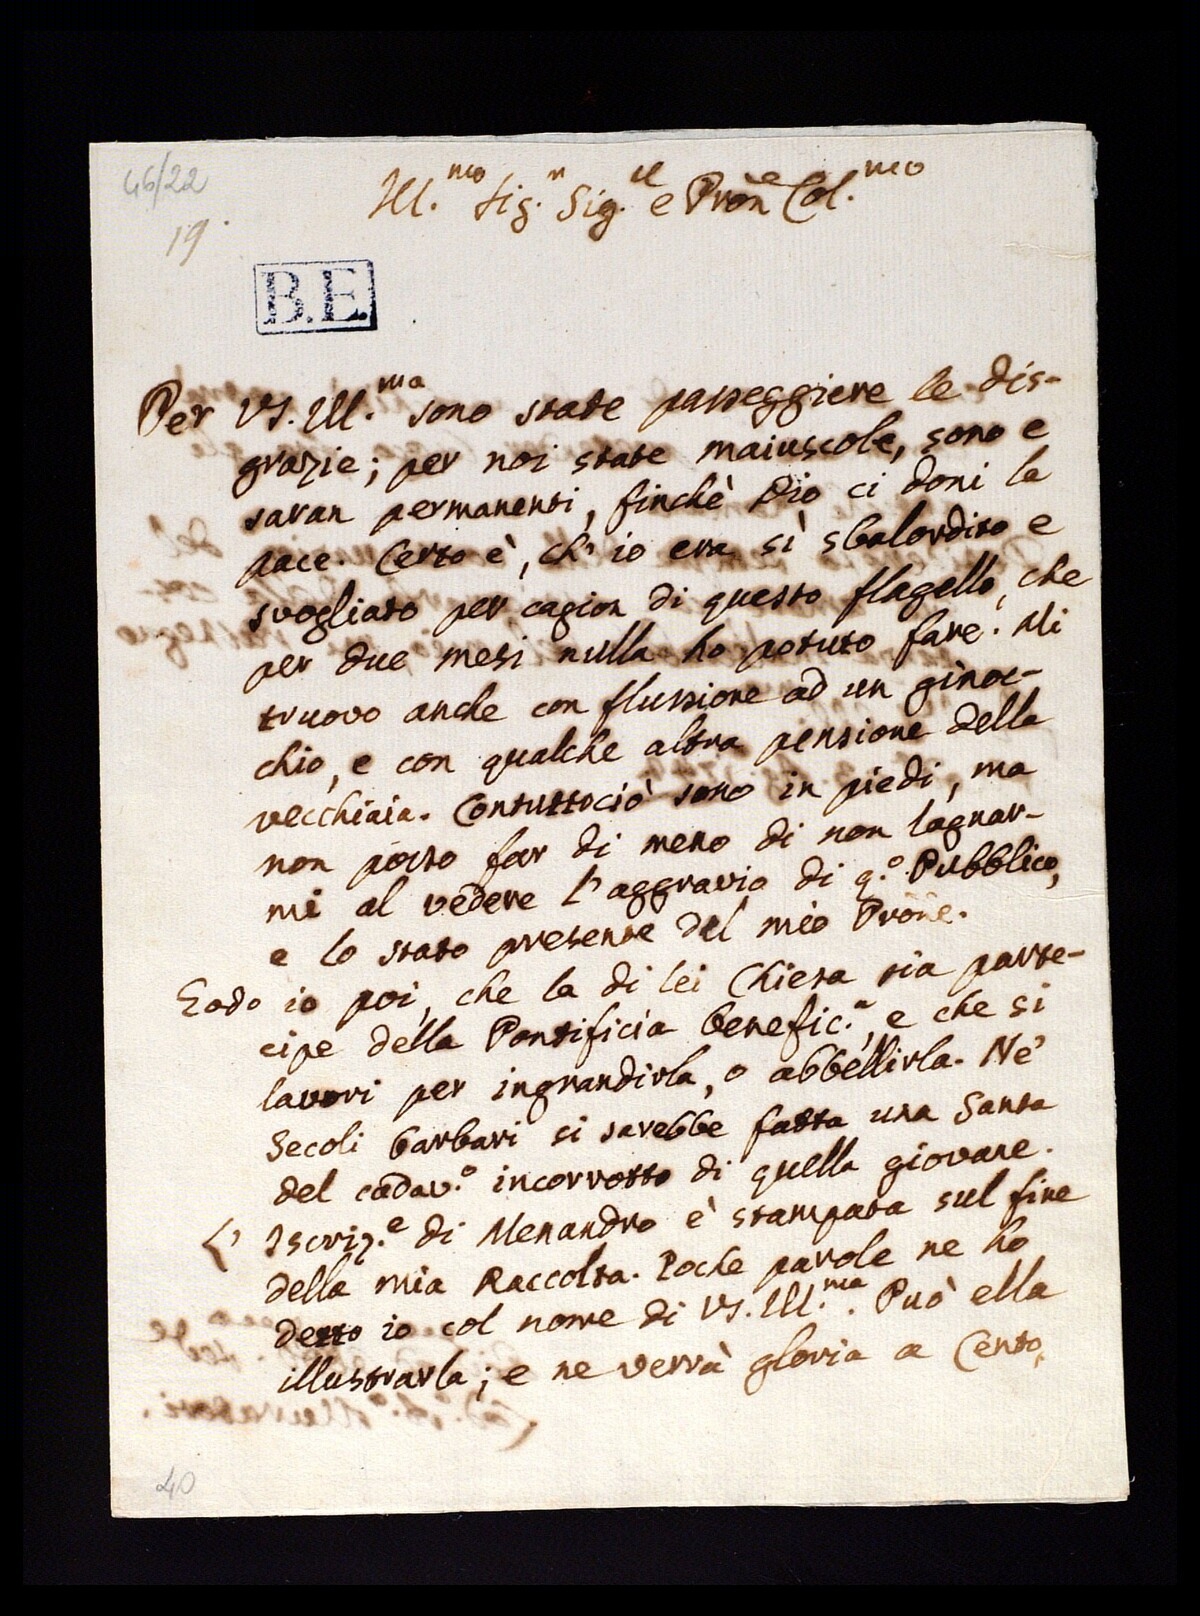 46/22
19.
Ill.mo Sig.r Sig.re e Pron̄e Col.mo
B.E.
Per VS. Ill.ma sono state passeggiere le dis-
grazie; per noi state maiuscole, sono e
saran permanenti, finchè Dio ci doni la
pace. Certo è, ch' io era sì sbalordito e
svogliato per cagion di questo flagello, che
per due mesi nulla ho potuto fare. Mi
truovo anche con flussione ad un ginoc-
chio, e con qualche altra pensione della
vecchiaia. Contuttociò sono in piedi, ma
non posso far di meno di non lagnar-
mi al vedere l' aggravio di q.o Pubblico,
e lo stato presente del mio Prōne.
Godo io poi, che la di lei Chiesa sia parte-
cipe della Pontificia benefic.a, e che si
lavori per ingrandirla, o abbellirla. Ne'
Secoli barbari si sarebbe fatta una Santa
del cadav.o incorrotto di quella giovane.
L' Iscriz.e di Menandro è stampata sul fine
della mia Raccolta. Poche parole ne ho
detto io col nome di VS. Ill.ma. Può ella
illustrarla; e ne verrà gloria a Cento,
40